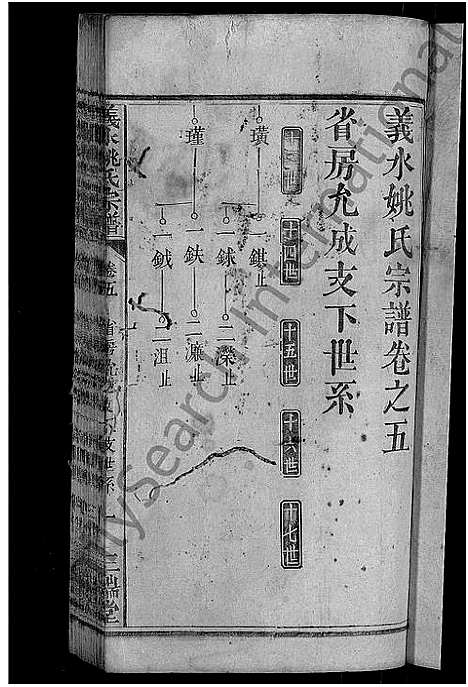 義水姚氏宗譜卷之五
省房允成支下世系
十三世 十四世 十五世 十六世 十七世
璜 一錤止
一銶 二濼止
瑾 一鈇 二濂止
一鉞 二沮止
義水姚氏宗譜 卷五 省房允成支下支世系 一 三瑞堂
MySearch International